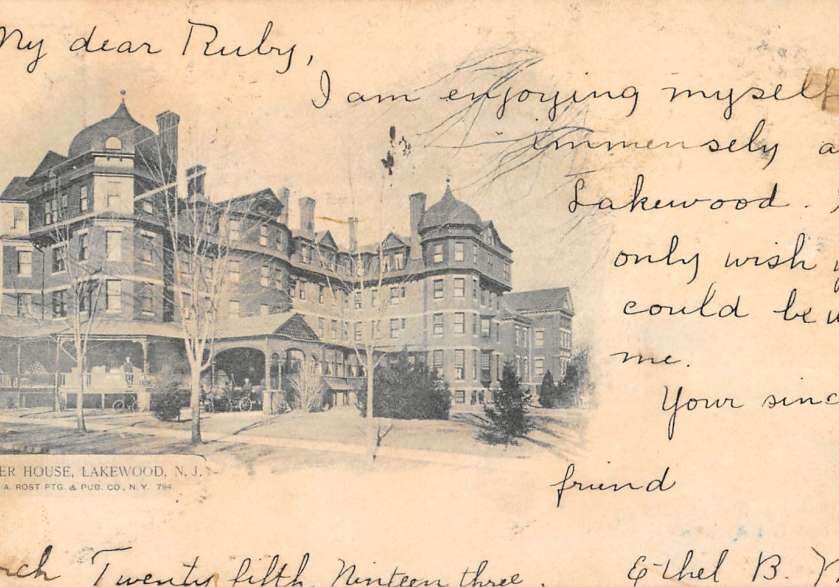 My dear Ruby,
I am enjoying myself
immensely a
Lakewood.
only wish y
could be w
me.
Your sinc
friend
ER HOUSE, LAKEWOOD, N. J.
A. ROST PTG. & PUB. CO., N.Y. 794
rch Twenty fifth, Ninteen three. Ethel B.